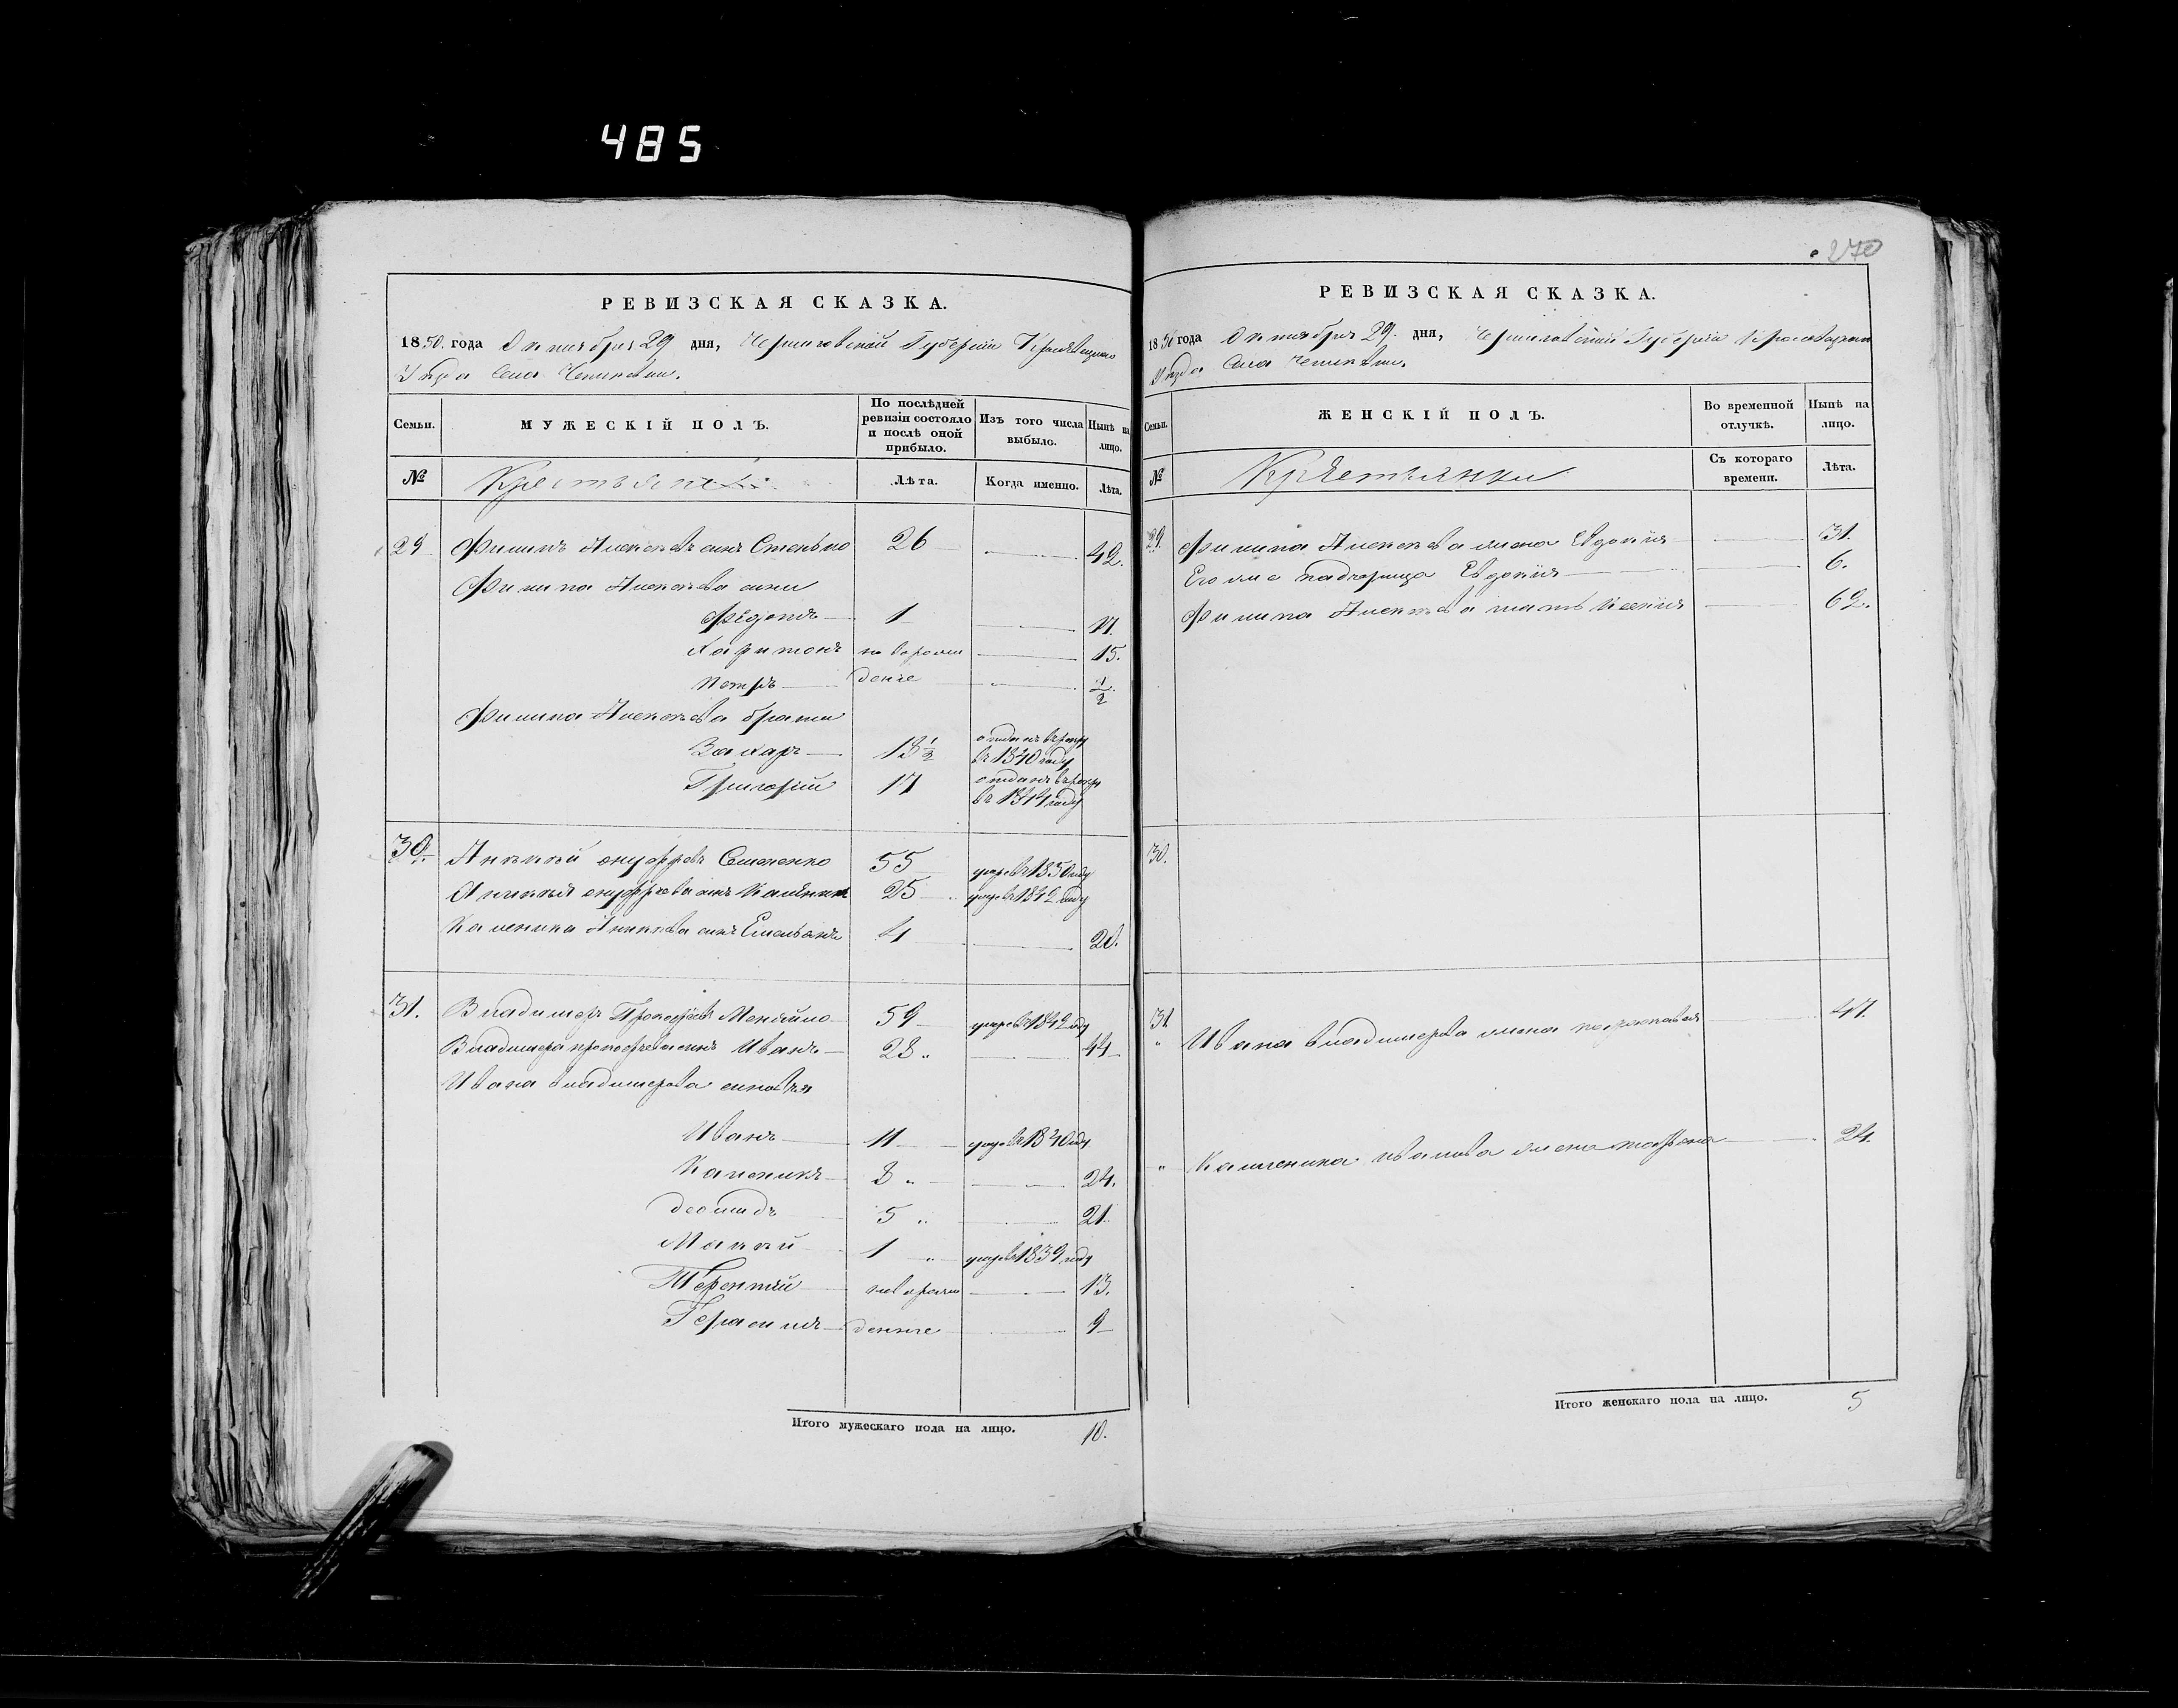 485
270
РЕВИЗСКАЯ СКАЗКА.
1850. года Октября 29 дня, Черниговской Губернии Кролевецкаго
Уезда Села
Семьи. МУЖЕСКІЙ ПОЛЪ. По послѣдней ревизіи состояло и послѣ оной прибыло. Изъ того числа выбыло. Нынѣ на лицо.
№ Лѣта. Когда именно. Лѣта.
29 Филипъ Алексѣевъ сынъ 26 42.
Филипа Алексѣева сыни
Федотъ 1 17.
Харитонъ новорож 15.
Петръ денье 1/2
Филипа Алексѣева брати
Захаръ 18 1/2 отданъ въ рекр въ 1840 году
Григорій 17 отданъ въ рекр въ 1844 году
30. 55 умре въ 1850 году
25 умре въ 1842 году
сынъ Емельянъ 4 20.
31. Владимеръ Прокофіевъ 59 умре въ 1842 году
Владимера прокофіева сынъ Иванъ 28 44
Ивана владимерова
Иванъ 11 умре въ 1840 году
Каленикъ 8 24.
5 21.
1 умре въ 1839 году
Терентій новорож 13.
Герасимъ денные 9
Итого мужескаго пола на лицо. 10.
РЕВИЗСКАЯ СКАЗКА.
1850 года Октября 29. дня, Черниговской Губерніи Кролевецкаго
Уезда Села
Семьи. ЖЕНСКІЙ ПОЛЪ. Во временной отлучкѣ. Нынѣ на лицо.
№ Крестьянки Съ котораго времени. Лѣта.
29. Филипа Алексѣева жена Евдокія 31.
Его же падчерица Евдокія 6.
Филипа Алексѣева мать Ксенія 62.
30.
31. Ивана владимерова жена 47.
иванова жена 24.
Итого женскаго пола на лицо. 5